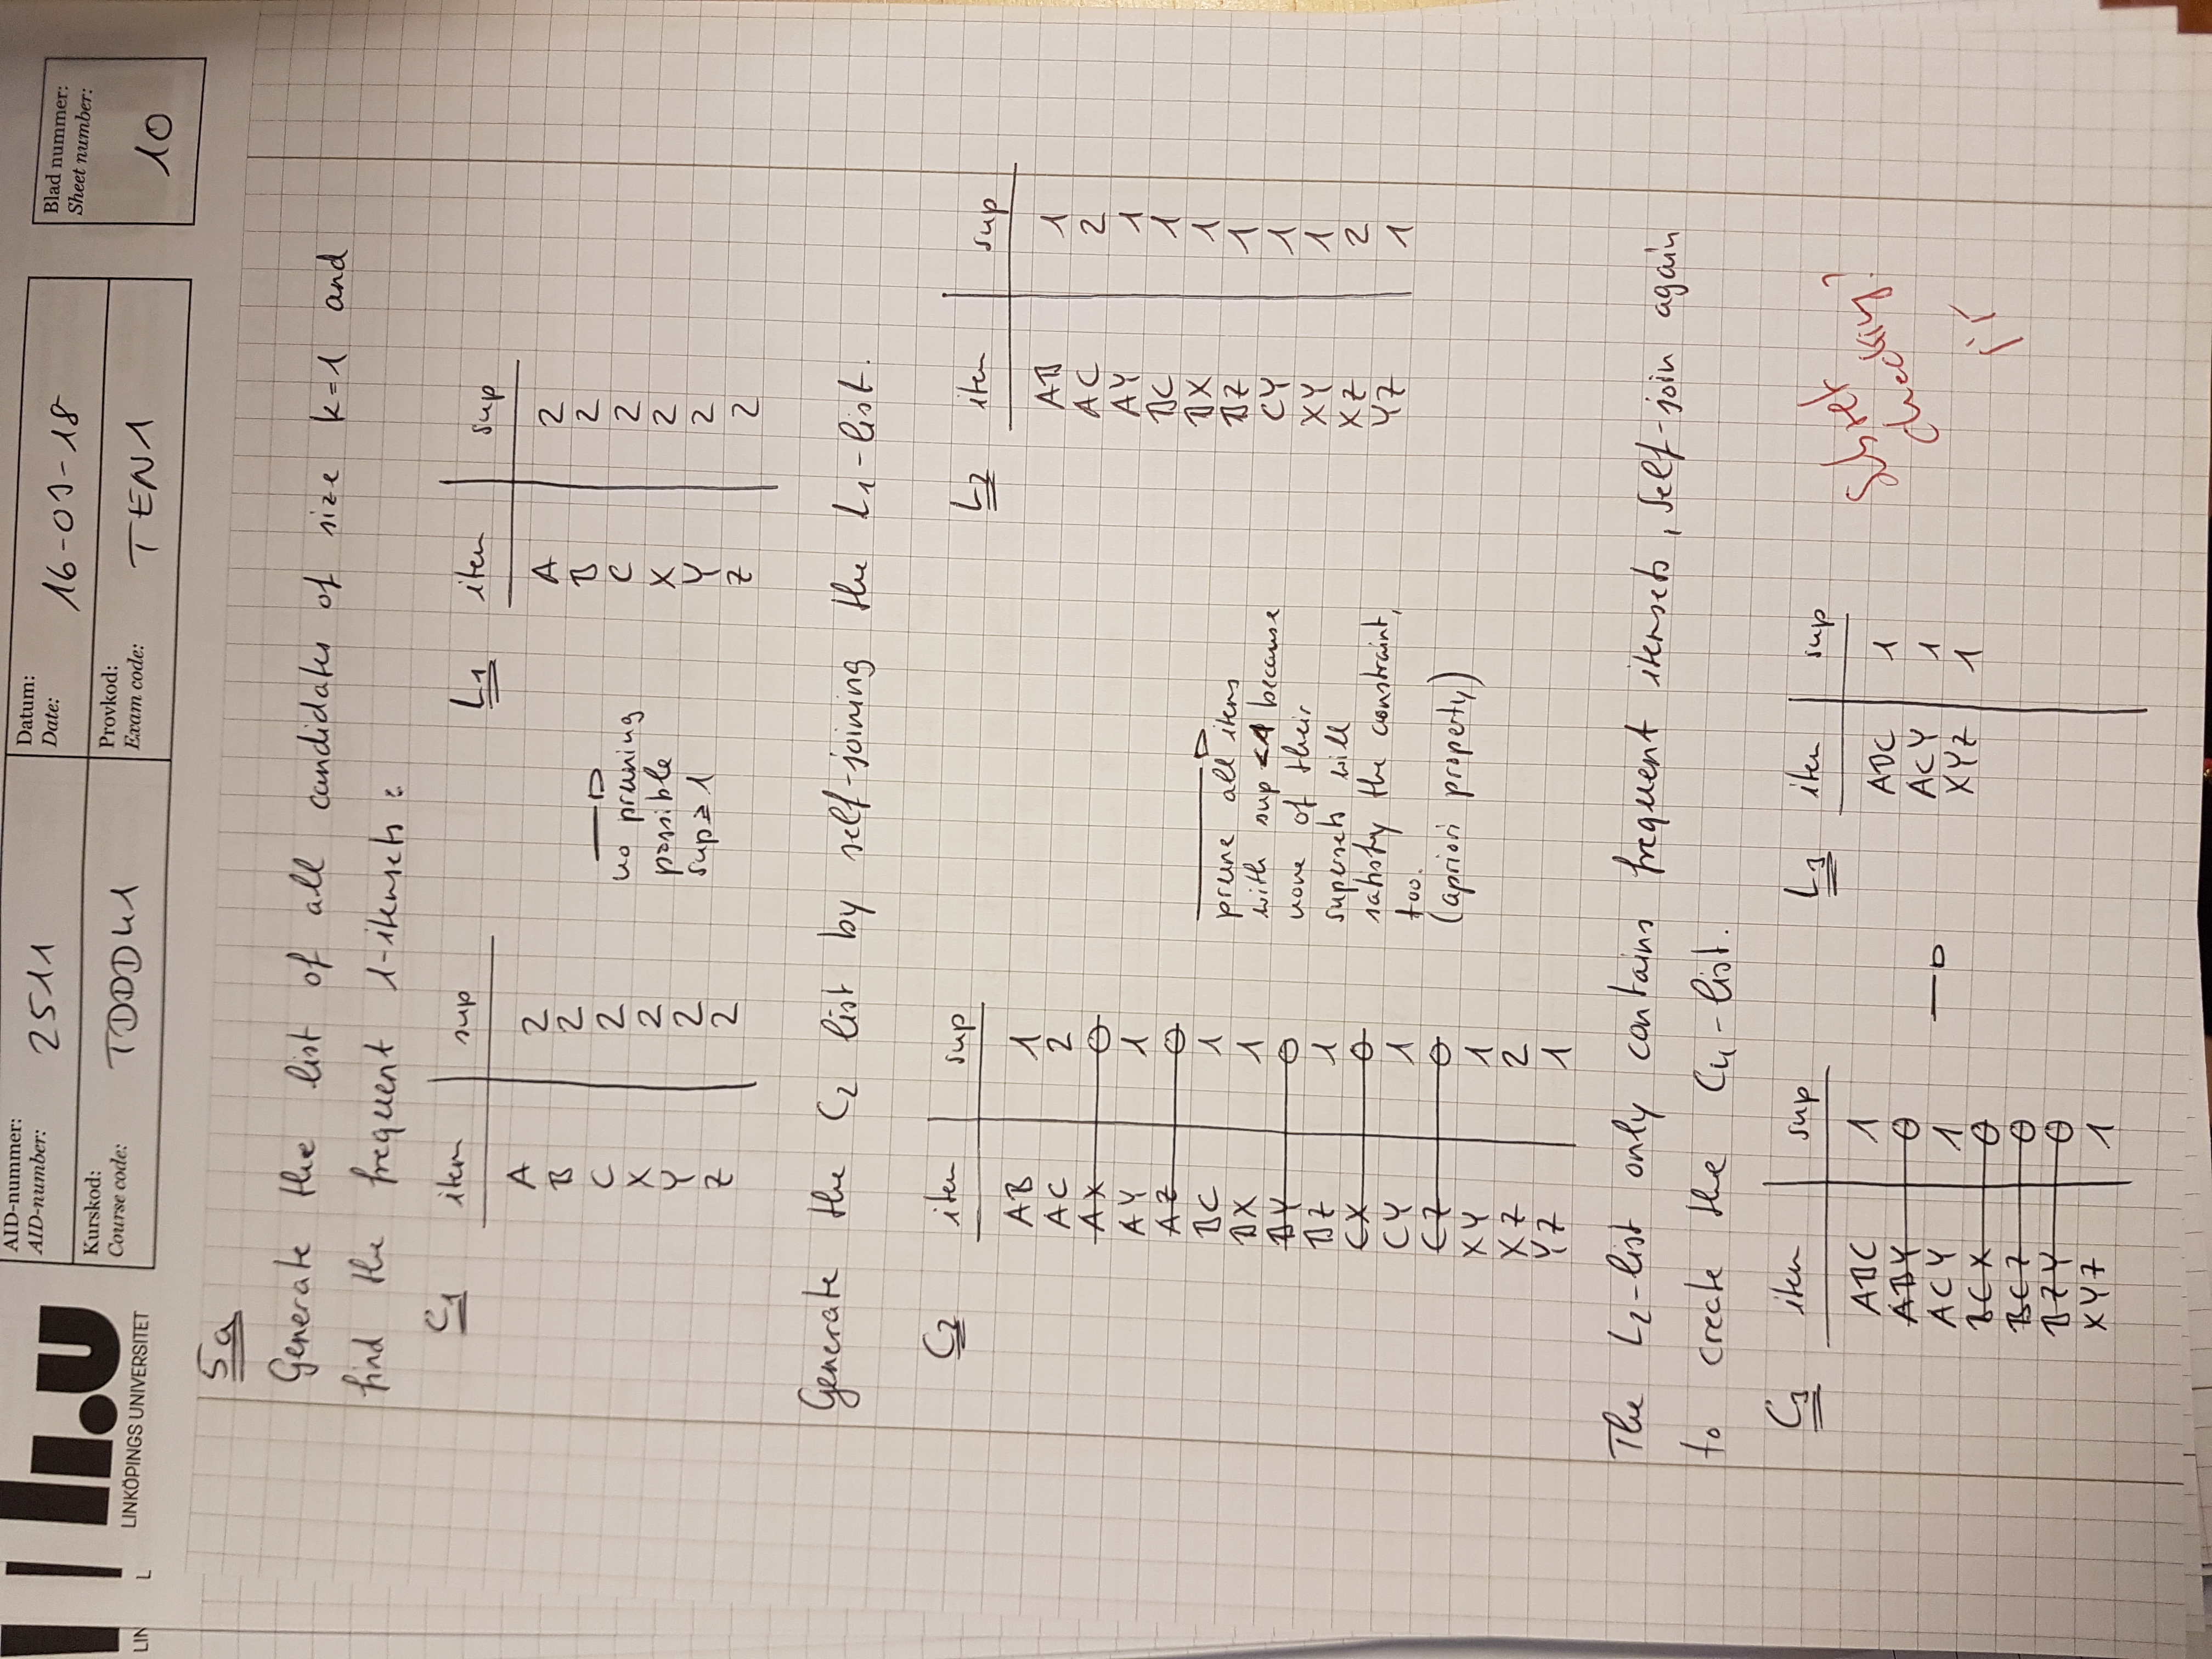 AID-nummer:
AID-number:
2511
Datum:
Date:
16-03-18
Blad nummer:
Sheet number:
10
Kurskod:
Course code:
TDDD41
Provkod:
Exam code:
TEN1
li.u
LINKÖPINGS UNIVERSITET
LIN
L
5a
Generate the list of all candidates of size k=1 and
find the frequent 1-itemsets:
C1 item sup
A 2
B 2
C 2
X 2
Y 2
Z 2
no pruning
possible
sup ≥ 1
L1 item sup
A 2
B 2
C 2
X 2
Y 2
Z 2
Generate the C2 list by self-joining the L1-list.
C2 item sup
AB 1
AC 2
AX 0
AY 1
AZ 0
BC 1
BX 1
BY 0
BZ 1
CX 0
CY 1
CZ 0
XY 1
XZ 2
YZ 1
prune all items
with sup <1 because
none of their
supersets will
satisfy the constraint,
too.
(apriori property)
L2 item sup
AB 1
AC 2
AY 1
BC 1
BX 1
BZ 1
CY 1
XY 1
XZ 2
YZ 1
The L2-list only contains frequent itemsets, self-join again
to create the C4-list.
C3 item sup
ABC 1
ABY 0
ACY 1
BCX 0
BCZ 0
BZY 0
XYZ 1
L3 item sup
ABC 1
ACY 1
XYZ 1
Subset
checking?